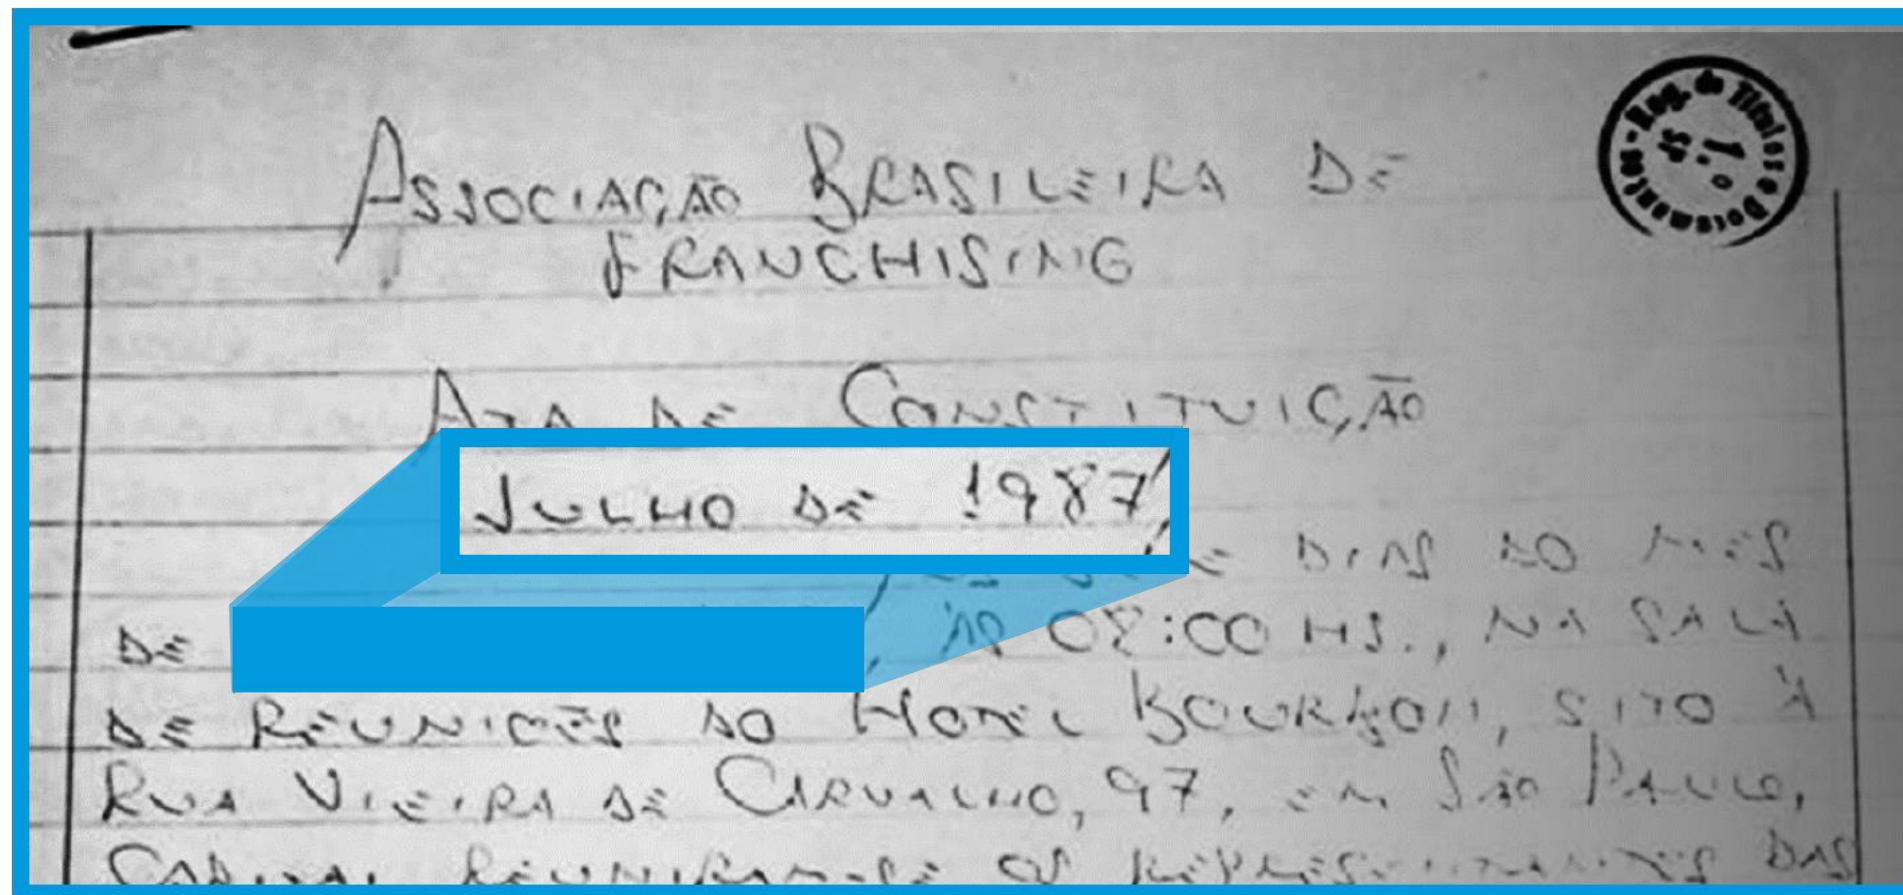 ASSOCIAÇÃO BRASILEIRA DE
FRANCHISING
1.º
SP
Reg. de Títulos e Documentos
ATA DE CONSTITUIÇÃO
JULHO DE 1987,
DIAS DO MÊS
DE , ÀS 08:00 HS., NA SALA
DE REUNIÕES DO HOTEL BOURBON, SITO À
RUA VIEIRA DE CARVALHO, 97, EM SÃO PAULO,
CAPITAL REUNIRAM-SE OS REPRESENTANTES DAS